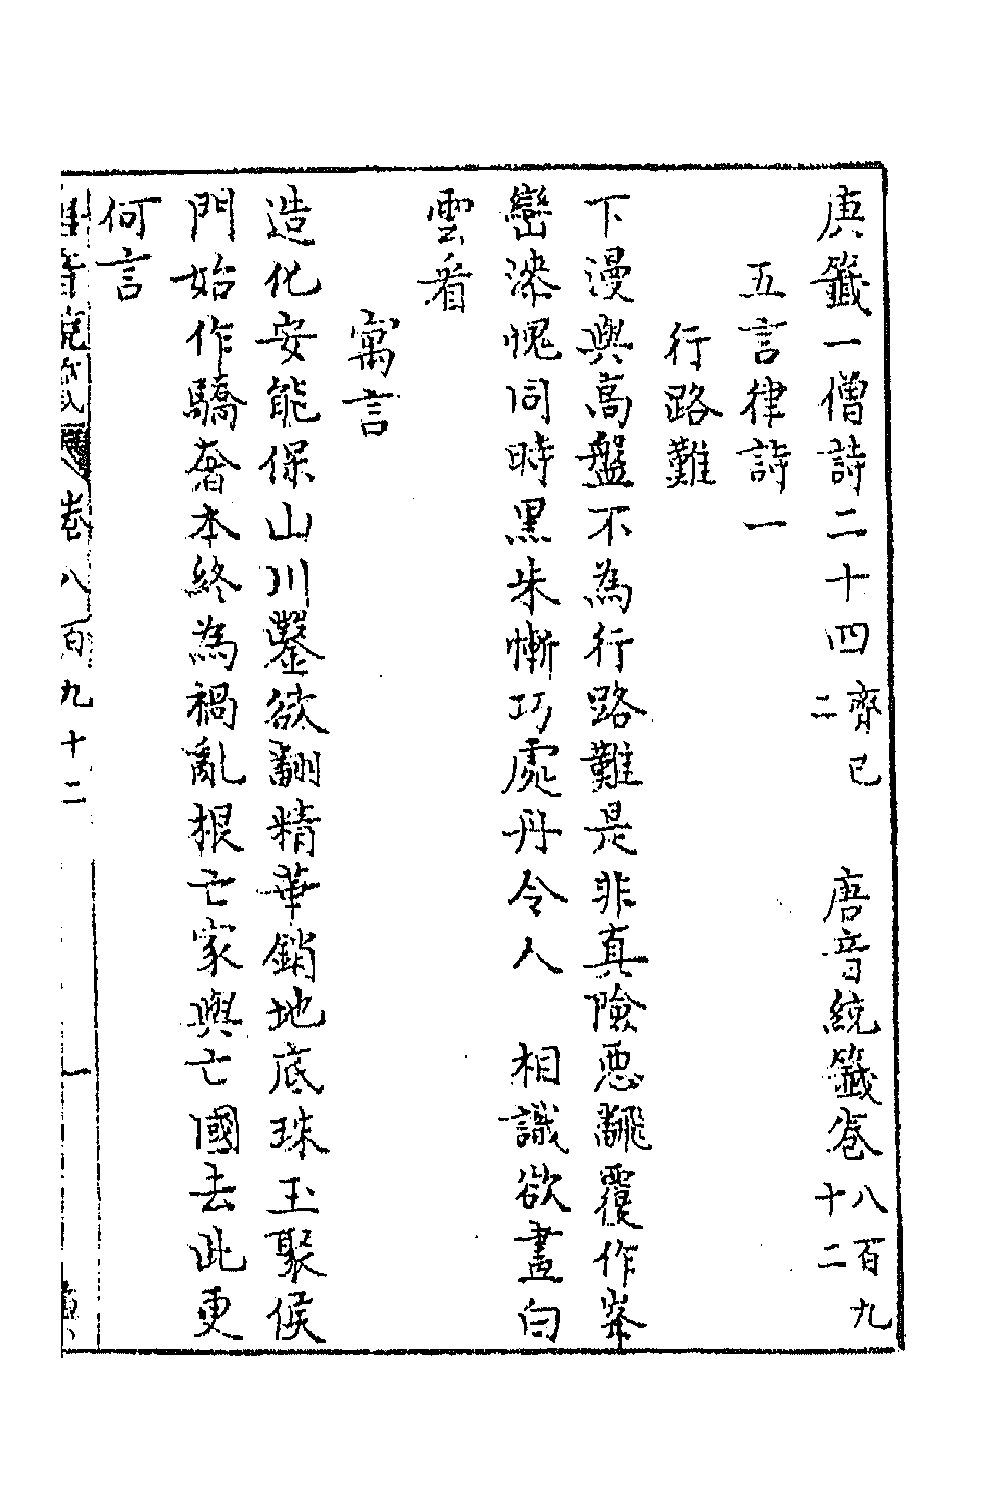 庚籤一僧詩二十四齊己二　唐音統籤卷八百九十二
五言律詩一
行路難
下漫與高盤不為行路難是非真險惡翻覆作峯
巒漆愧同時黑朱慚巧處丹令人　相識欲盡白
雲看
寓言
造化安能保山川鑿欲翻精華銷地底珠玉聚侯
門始作驕奢本終為禍亂根亡家與亡國去此更
何言
卷八百九十二　一